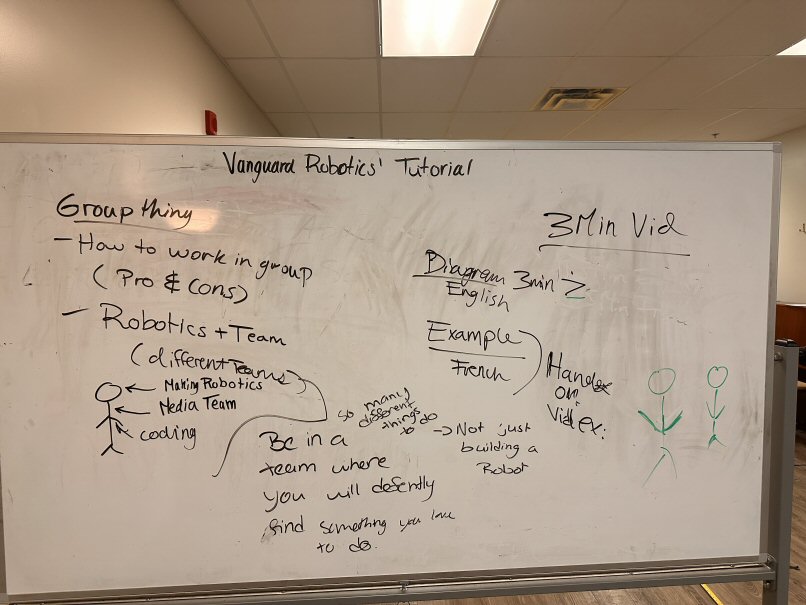 Vanguard Robotics' Tutorial
Group thing
- How to work in group
( Pro & Cons)
- Robotics + Team
(different Teams)
Making Robotics
Media Team
coding
Be in a
team where
you will defently
find something you love
to do.
so many
different
things
to do
-> Not just
building a
Robot
3 Min Vid
Diagram 3min
English
Example
French
or
Vid ex: